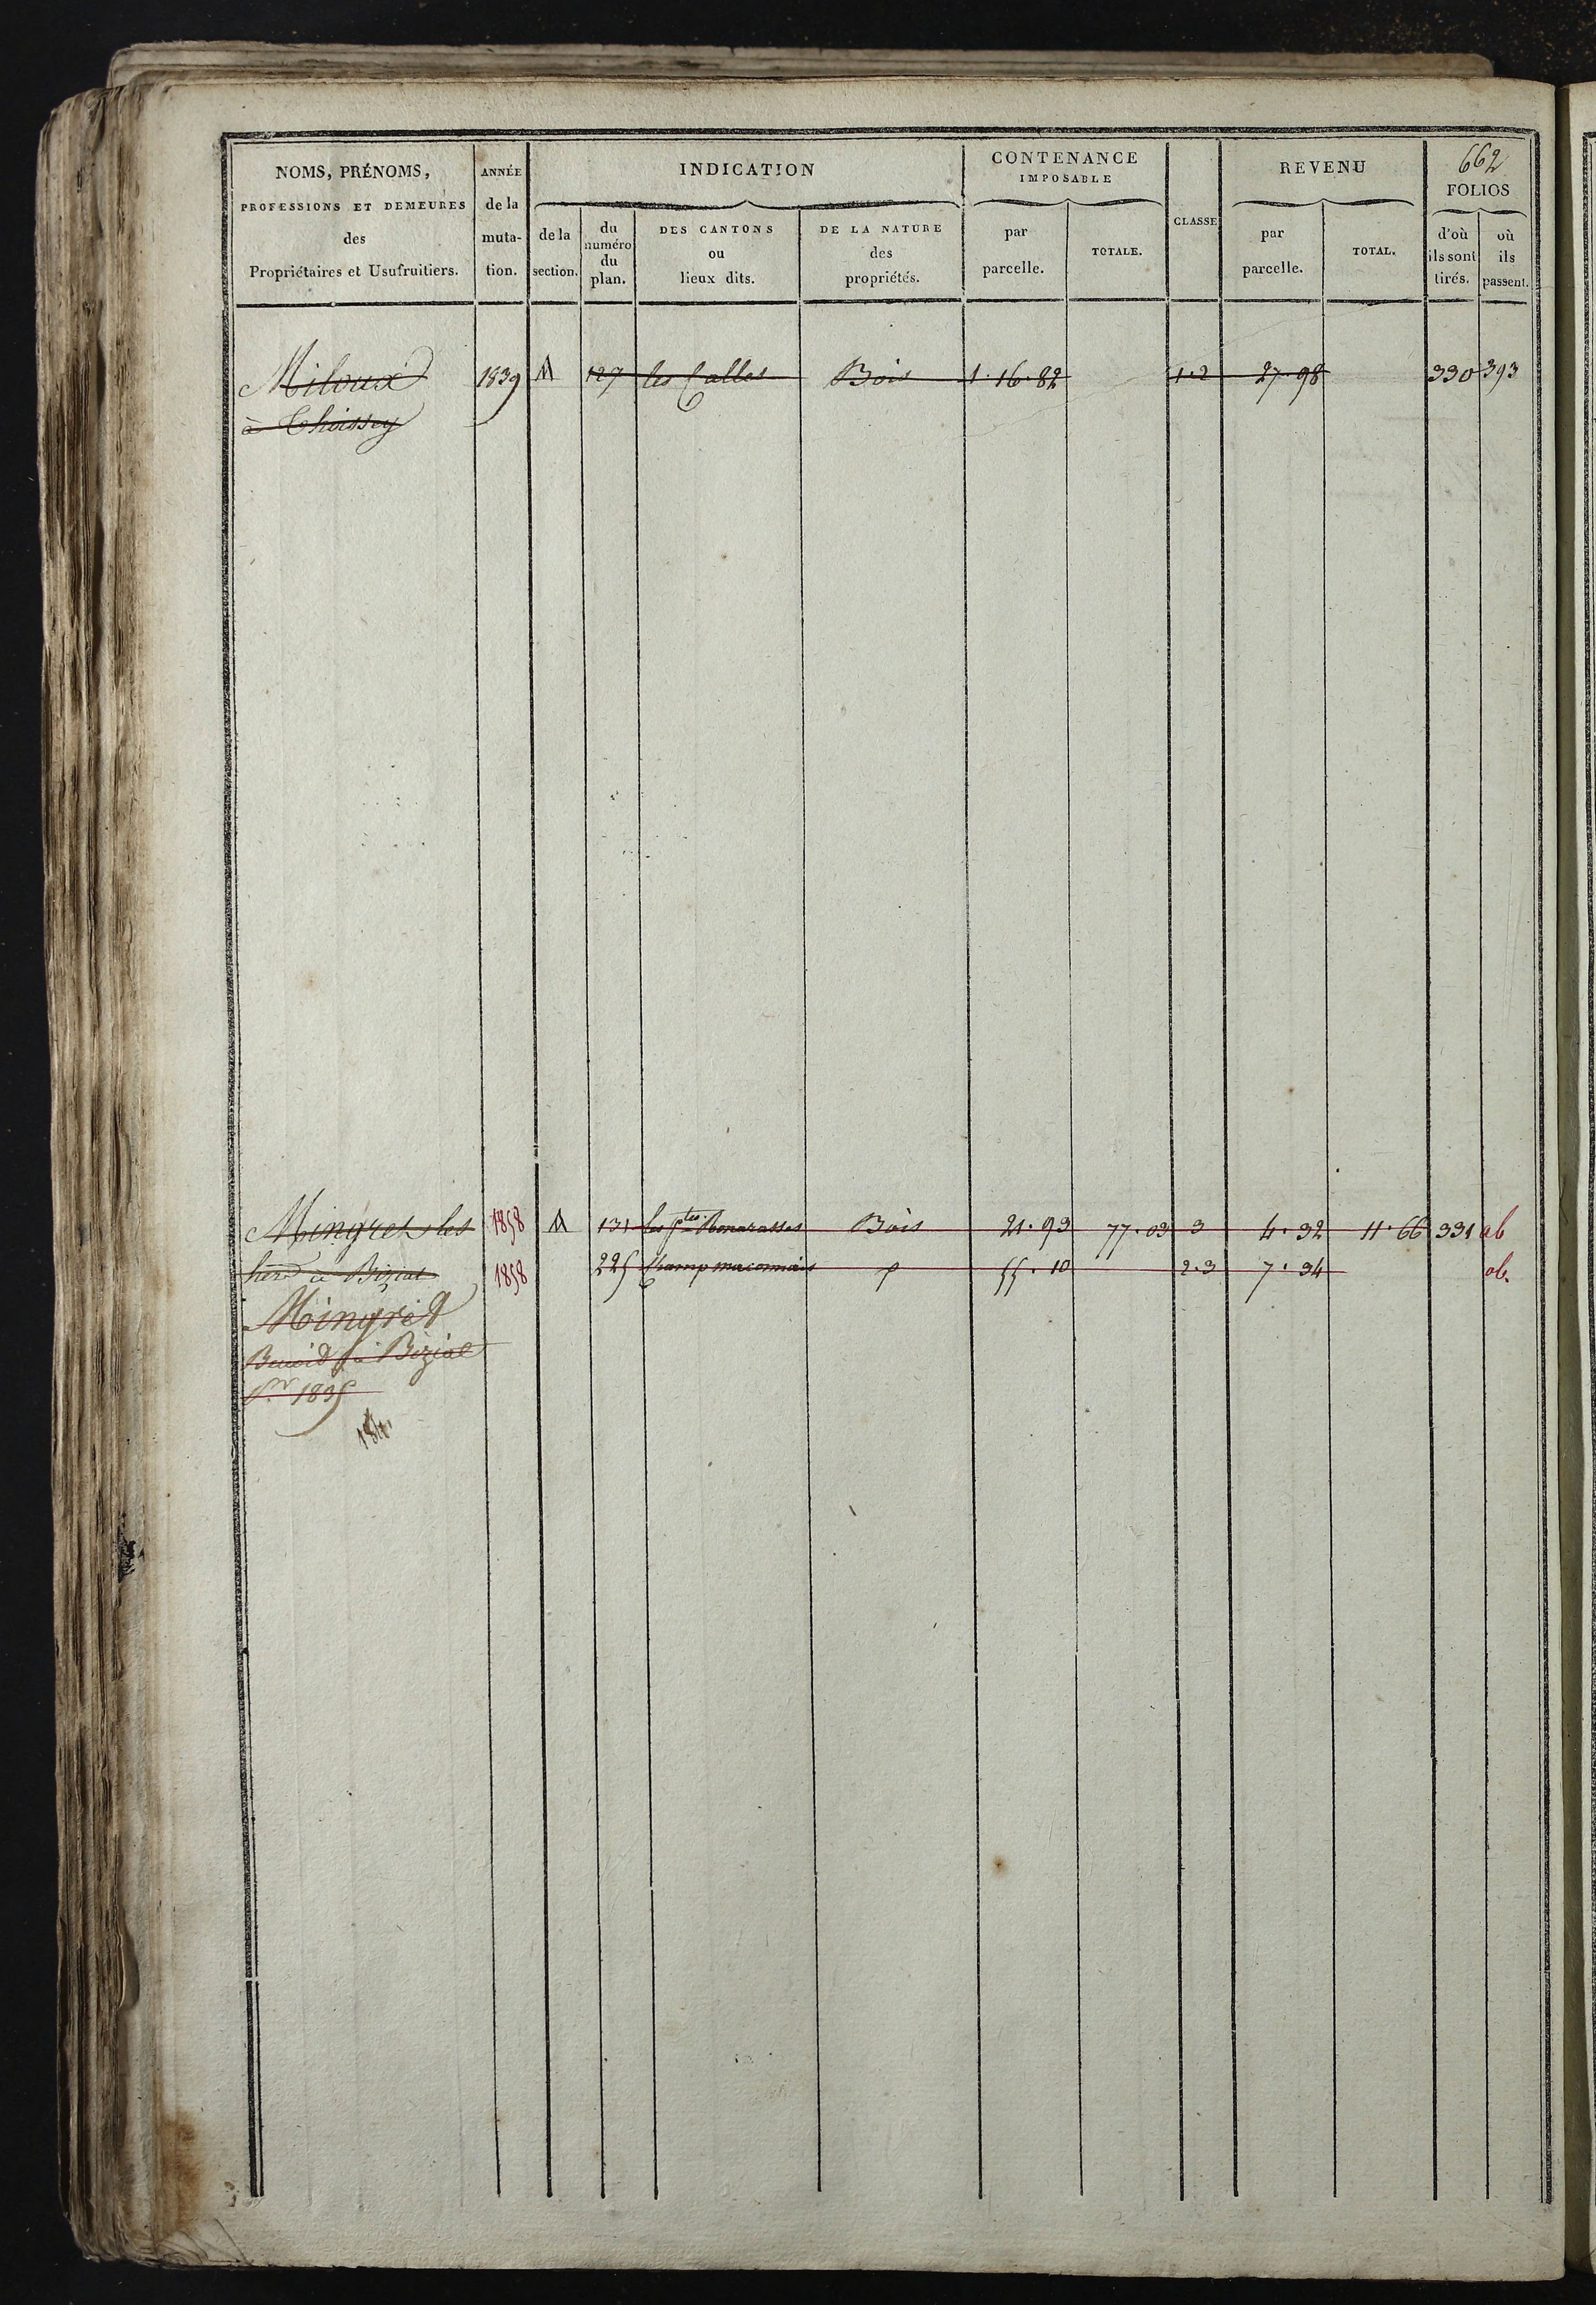 662
NOMS, PRÉNOMS, PROFESSIONS ET DEMEURES des Propriétaires et Usufruitiers.
ANNÉE de la muta- tion.
INDICATION
de la section.
du numéro du plan.
DES CANTONS ou lieux dits.
DE LA NATURE des propriétés.
CONTENANCE IMPOSABLE
par parcelle.
TOTALE.
CLASSE
REVENU
par parcelle.
TOTAL.
FOLIOS
d'où ils sont tirés.
où ils passent.
Miloux 1839 M 127 les Calles Bois 1.16.82 1.2 27.98 330 393
à Thoissey
Mingret les 1858 M 131 les ptes Bois 21.93 77.03 3 4.32 11.66 331 ab
hérs à Biziat 1858 225 Champ maconnais p 55.10 2.3 7.34 ab.
Mingret
Benoid à Biziat
Pr 1835